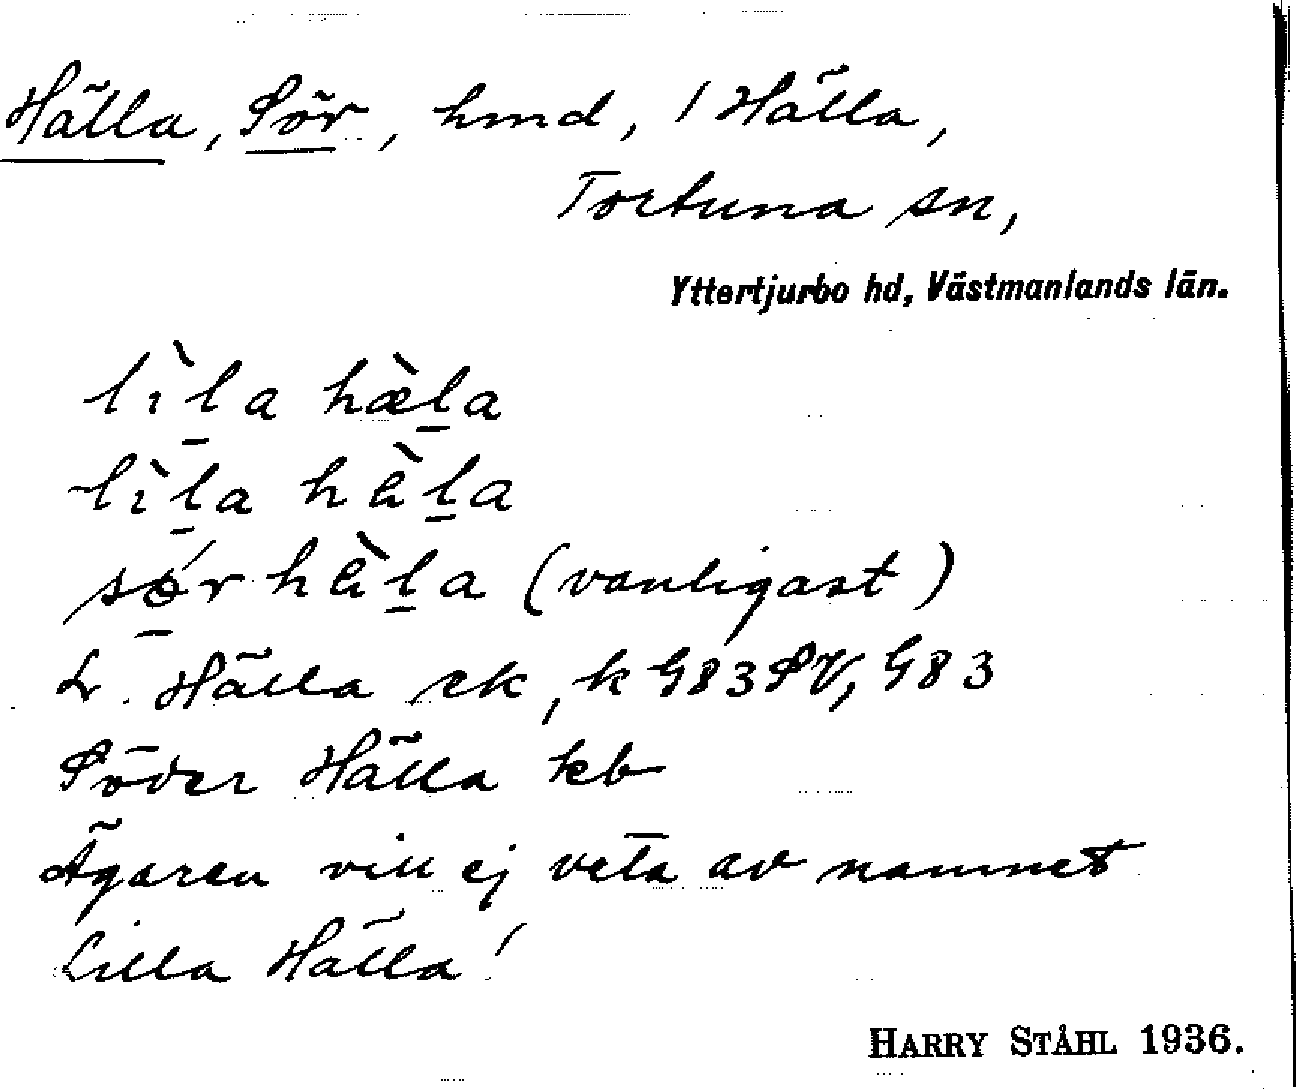 Hälla, Sör, hmd, / Hälla,
Tortuna sn,
Yttertjurbo hd, Västmanlands län.
lìl̠a hæ̀l̠a
lìl̠a hàl̠a
sǿ̠r hàl̠a (vanligast)
L. Hälla ek, k G83SV, G83
Söder Hälla kb
Ägaren vill ej veta av namnet
Lilla Hälla!
HARRY STÅHL 1936.